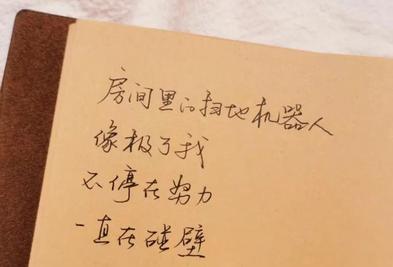 房间里的扫地机器人
像极了我
不停在努力
一直在碰壁